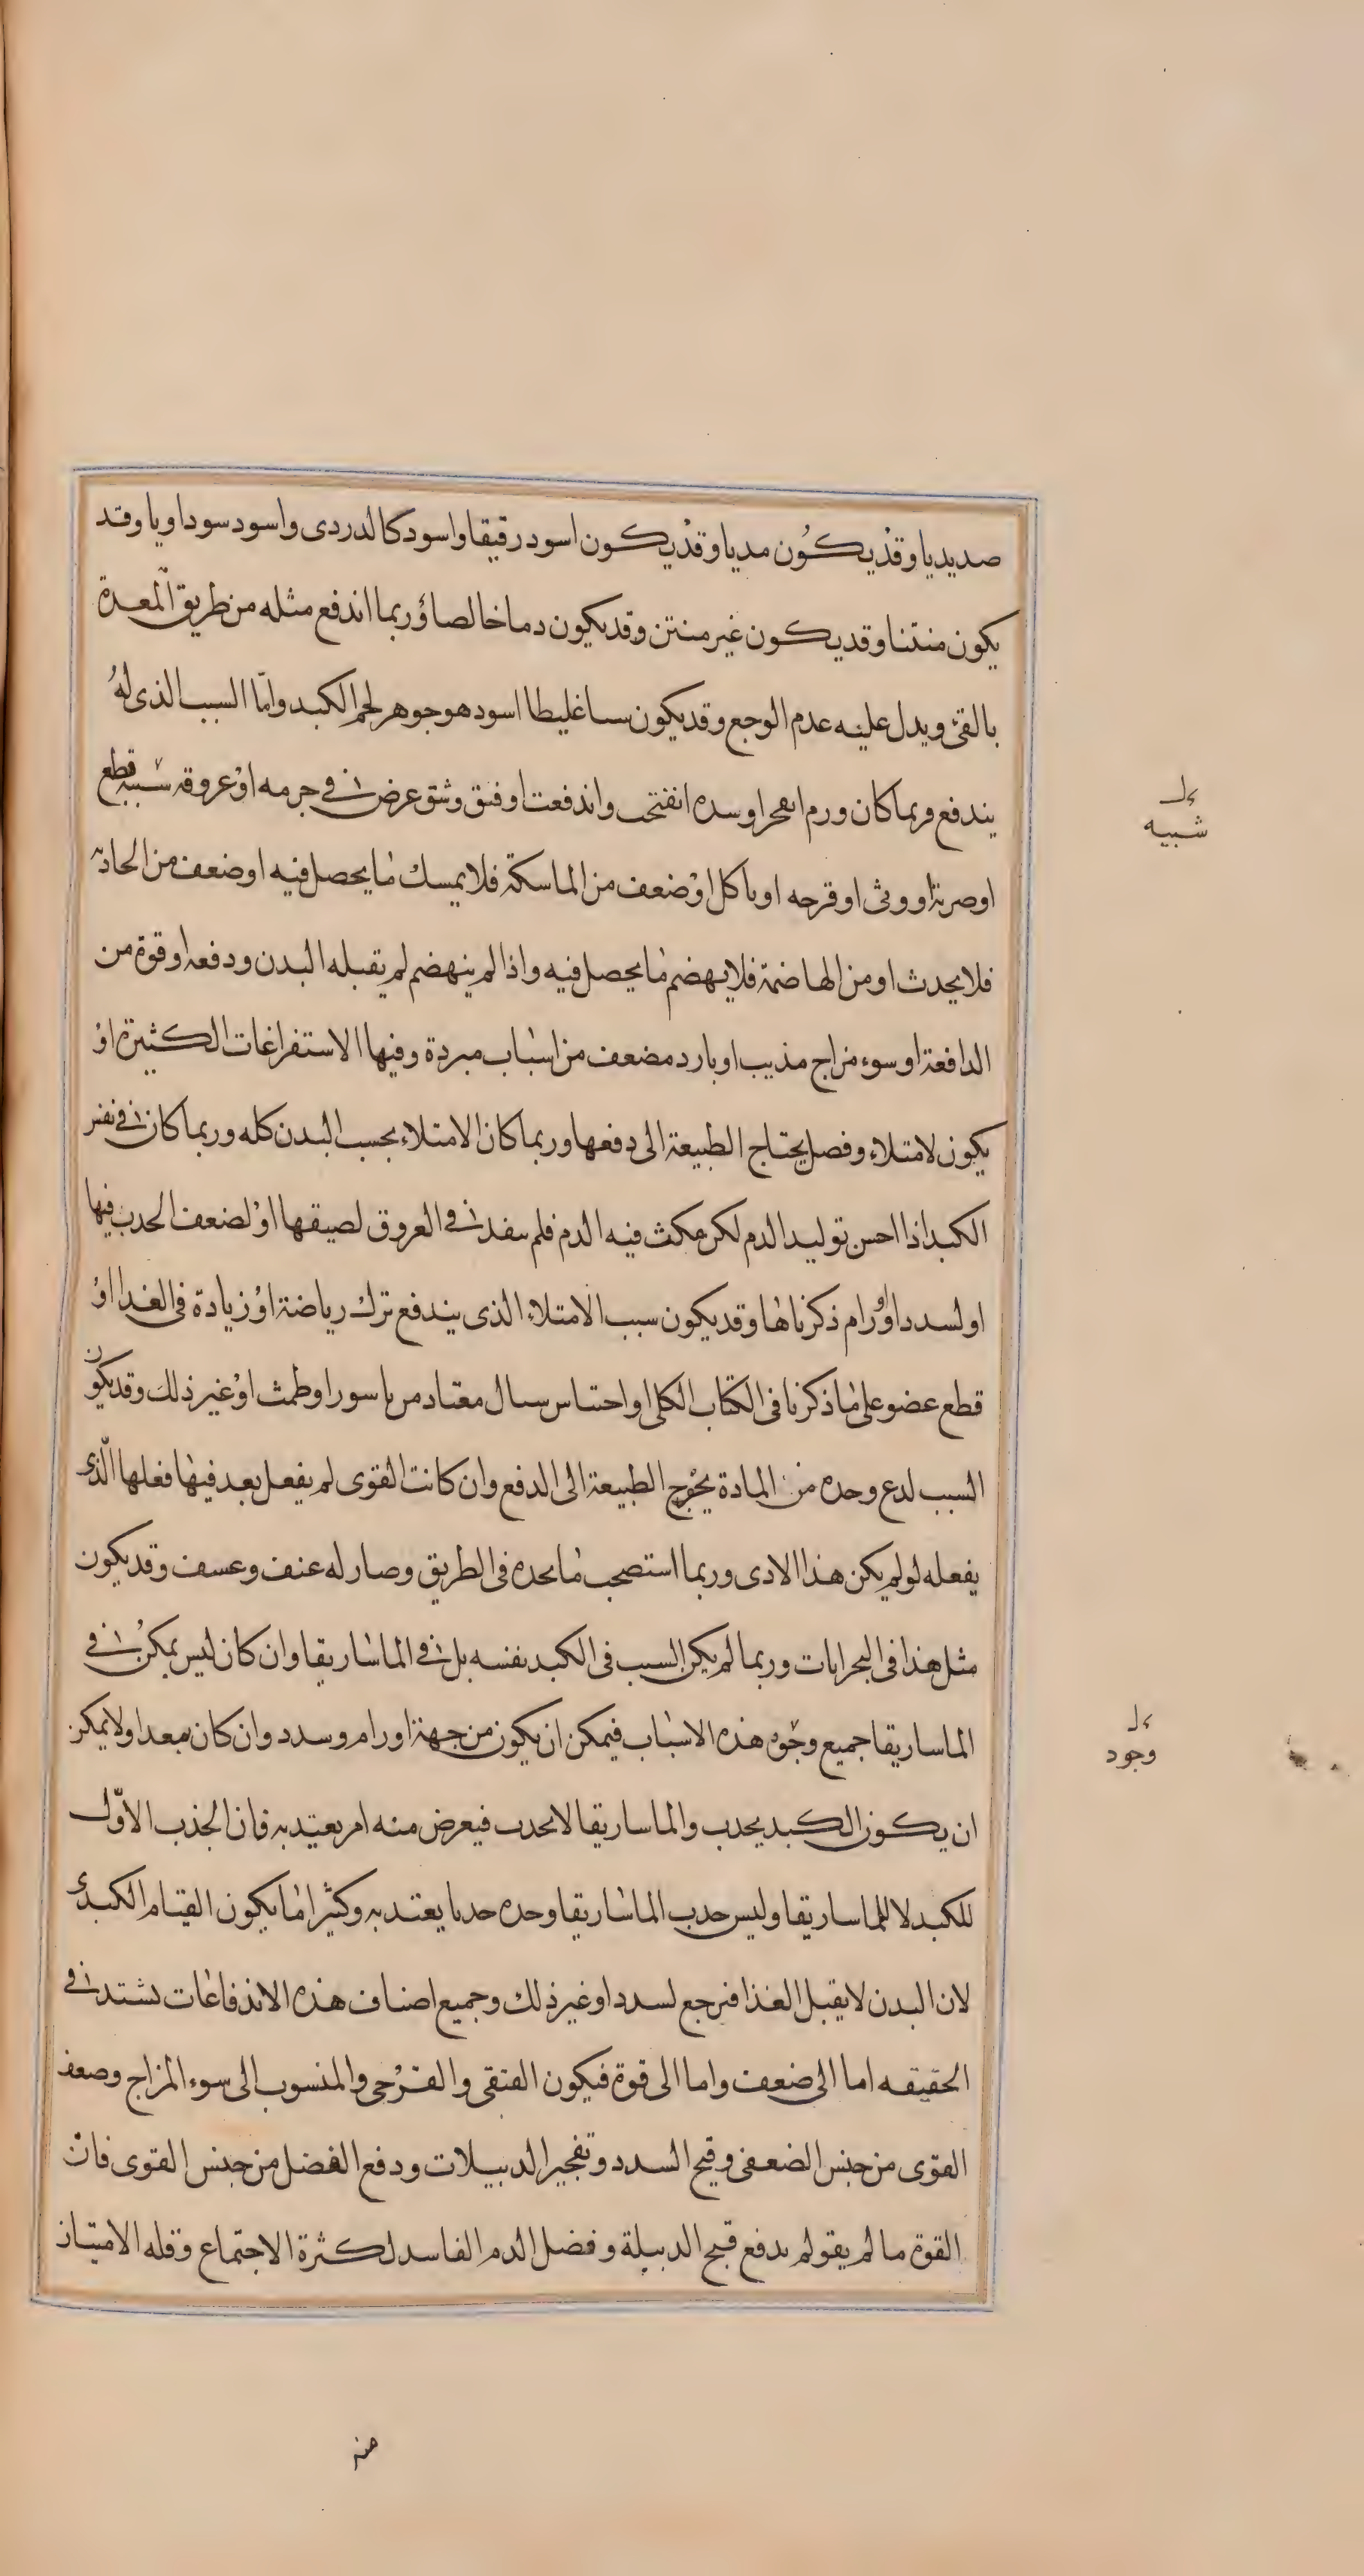 صديديا وقد يكون مديا وقد يكون اسود رقيقا واسود كالدردى واسود سوداويا وقد
يكون منتنا وقد يكون غير منتن وقد يكون دما خالصا وربما اندفع مثله من طريق المعدة
بالقئ ويدل عليه عدم الوجع وقد يكون سا غليطا اسود هو جوهر لحم الكبد واما السبب الذى له
يندفع وربما كان ورم انفجر او سده انفتحت واندفعت او فتق وشق عرض فى جرمه او عروقه سببه قطع
او ضربة او وثى او قرحه او باكل او ضعف من الماسكة فلا يمسك ما يحصل فيه او ضعف من الجاذبة
فلا يجدث او من الهاضمة فلا يهضم ما يحصل فيه واذا لم ينهضم لم يقبله البدن ودفعه او قوة من
الدافعة او سوء مزاج مذيب او بارد مضعف من اسباب مبردة وفيها الاستفراغات الكثيرة او
يكون لامتلاء وفصل يحتاج الطبيعة الى دفعها وربما كان الامتلاء بحسب البدن كله وربما كان فى نفس
الكبد اذا احسن توليد الدم لكن مكث فيه الدم فلم ينفد فى العروق لضيقها او لضعف الجدب فيها
او لسدد او اورام ذكرناها وقد يكون سبب الامتلاء الذى يندفع ترك رياضة او زيادة فى الغدا او
قطع عضو على ما ذكرنا فى الكتاب الكلى او احتباس سيال معتاد من باسور او طمث او غير ذلك وقد يكون
السبب لدع وحده من المادة يحوج الطبيعة الى الدفع وان كانت القوى لم يفعل بعد فيها فعلها الذى
يفعله لو لم يكن هذا الادى وربما استصحب ما يجده فى الطريق وصار له عنف وعسف وقد يكون
مثل هذا فى البحرانات وربما لم يكن السبب فى الكبد نفسه بل فى الماساريقا وان كان ليس يمكن فى
الماساريقا جميع وجوه هذه الاسباب فيمكن ان يكون من جهة اورام وسدد وان كان يبعد او لا يمكن
ان يكون الكبد يجدب والماساريقا لا يجدب فيعرض منه امر يعتد به فان الجذب الاول
للكبد لا للماساريقا وليس جدب الماساريقا وحده جدبا يعتد به وكثيرا ما يكون القيام الكبدى
لان البدن لا يقبل الغذا فيرجع لسدد او غير ذلك وجميع اصناف هذه الاندفاعات تشتد فى
الحقيقه اما الى ضعف واما الى قوة فيكون الفتقى والقرحى والمنسوب الى سوء المزاج وضعف
القوى من جنس الضعفى وفتح السدد وتفجير الدبيلات ودفع الفضل من جنس القوى فان
القوة ما لم يقو لم يدفع قيح الدبيلة وفضل الدم الفاسد لكثرة الاجتماع وقله الامتياز
شبيه
وجود
منه